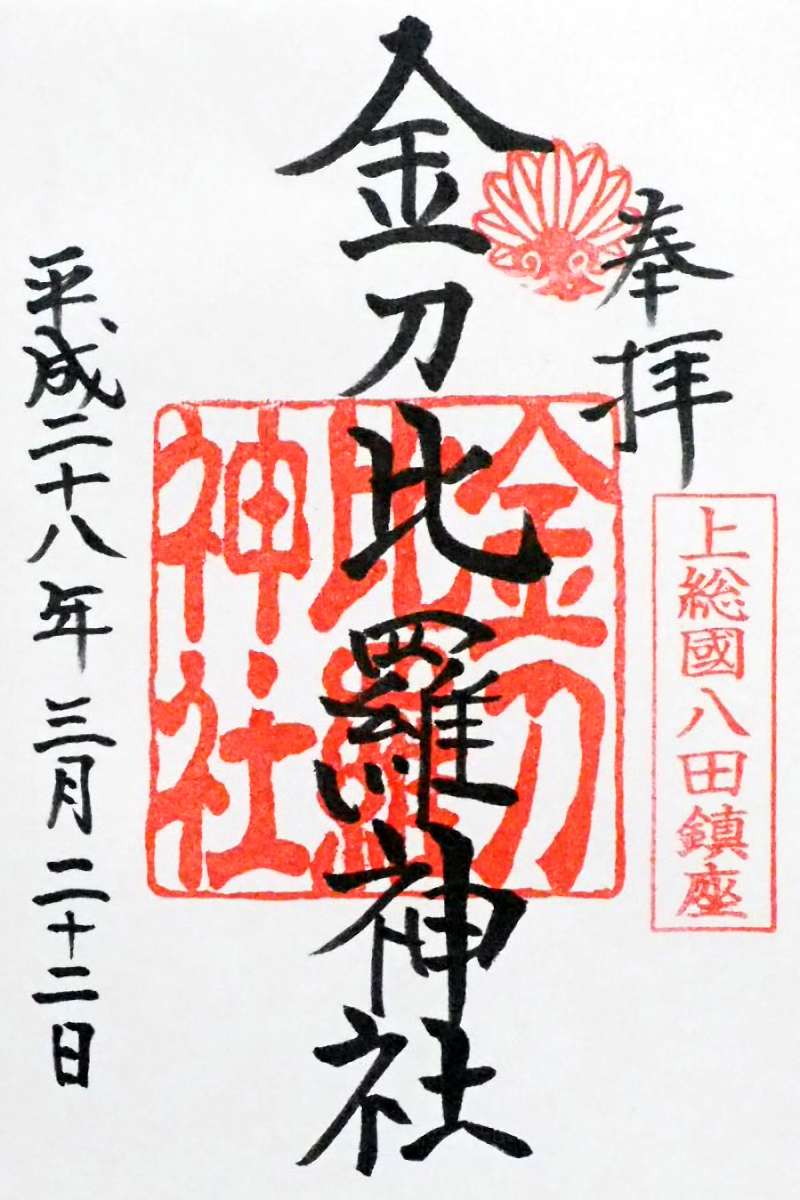 奉拝
上総國八田鎮座
金刀比羅神社
金刀比羅神社
平成二十八年三月二十二日